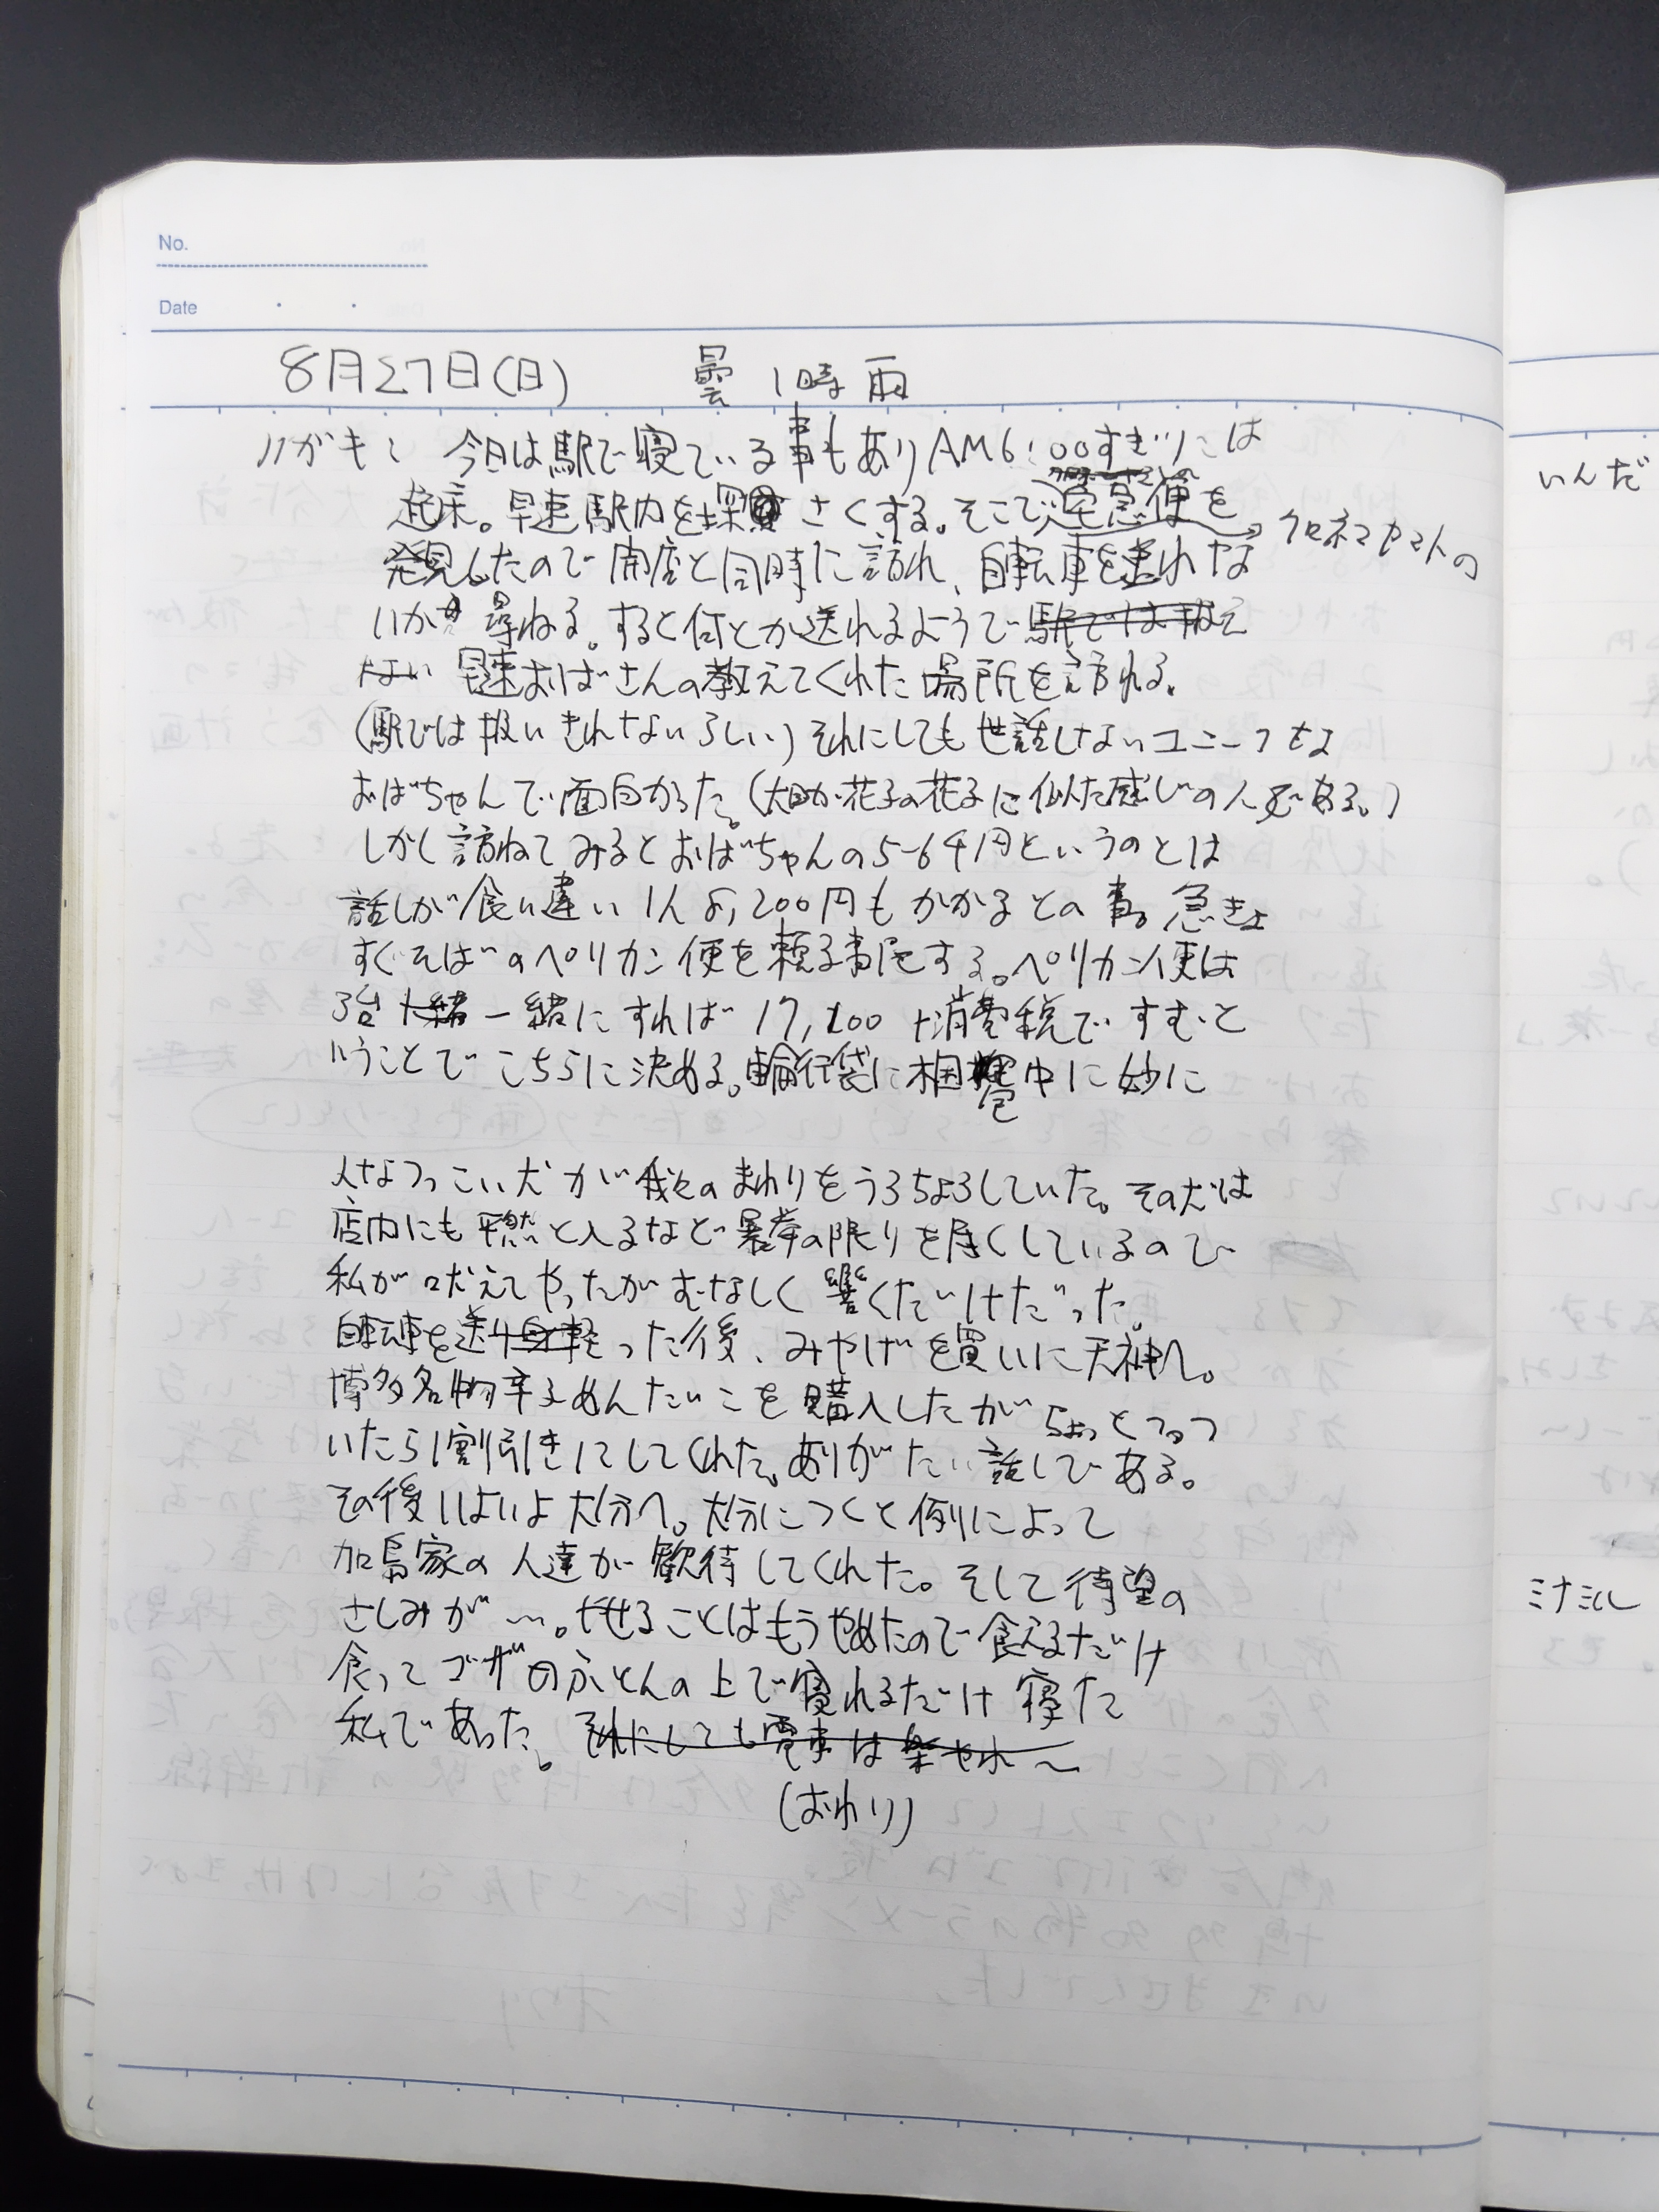 No.
Date
8月27日(日) 曇 1時 雨
いがもく 今日は駅で寝ている事もありAM6:00すぎには
起床。早速駅内を探さくする。そこで宅急便を
クロネコヤマトの
発見したので開店と同時に訪れ、自転車を送れな
いか 尋ねる。すると何とか送れるようで駅では扱え
ない 早速おばさんの教えてくれた場所を訪れる。
(駅では扱いきれないらしい)それにしても世話しないユニークな
おばちゃんで面白かった。(大助・花子の花子に似た感じの人である。)
しかし訪ねてみるとおばちゃんの5-6千円というのとは
話しが食い違い1人8,200円もかかるとの事。急きょ
すぐそばのペリカン便を頼る事にする。ペリカン便は
3台 一緒 一緒にすれば 17,100 +消費税で すむと
いうことでこちらに決める。輪行袋に梱包中に妙に
人なつっこい犬が我々のまわりをうろちょろしていた。その犬は
店内にも平然と入るなど暴挙の限りを尽くしているので
私が吠えてやったがむなしく響くだけだった。
自転車を送り身軽った後、みやげを買いに天神へ。
博多名物辛子めんたいこを購入したがちょっとつっつ
いたら1割引きにしてくれた。ありがたい話しである。
その後いよいよ大分へ。大分につくと例によって
加島家の人達が歓待してくれた。そして待望の
さしみが〜。やせることはもうやめたので食えるだけ
食ってゴザのふとんの上で寝れるだけ寝た
私であった。それにしても電車は楽やわ〜
(おわり)
いんだ
ミナミに